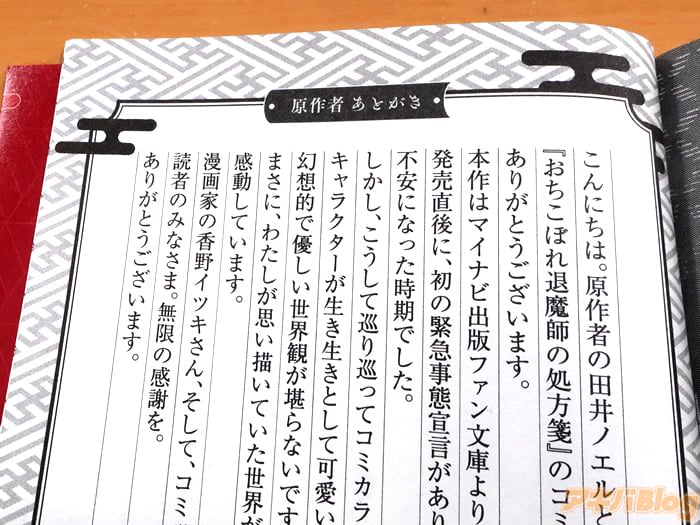 原作者 あとがき
こんにちは。原作者の田井ノエルと
『おちこぼれ退魔師の処方箋』のコミ
ありがとうございます。
本作はマイナビ出版ファン文庫より
発売直後に、初の緊急事態宣言があり
不安になった時期でした。
しかし、こうして巡り巡ってコミカラ
キャラクターが生き生きとして可愛い
幻想的で優しい世界観が堪らないです
まさに、わたしが思い描いていた世界が
感動しています。
漫画家の香野イツキさん、そして、コミ
読者のみなさま。無限の感謝を。
ありがとうございます。
アキバBlog